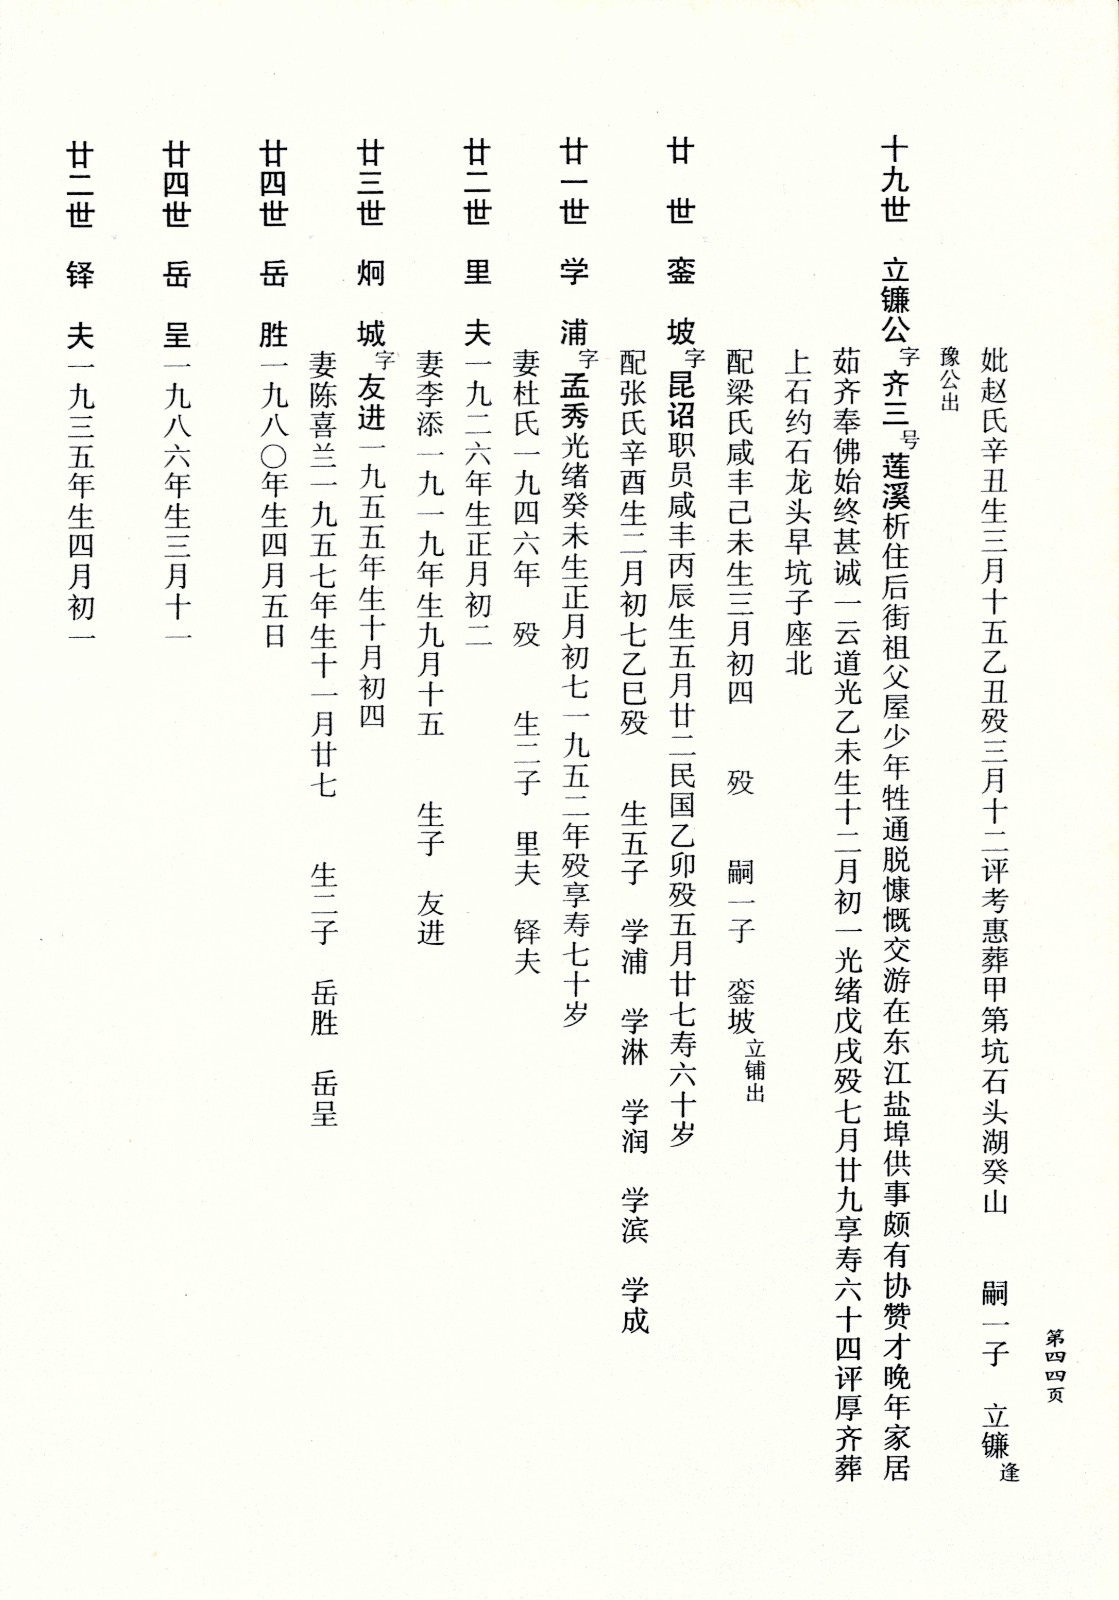 第四四页
妣赵氏辛丑生三月十五乙丑殁三月十二评考惠葬甲第坑石头湖癸山 嗣一子 立镰逢
豫公出
十九世 立镰公字齐三号莲溪析住后街祖父屋少年性通脱慷慨交游在东江盐埠供事颇有协赞才晚年家居
茹齐奉佛始终甚诚一云道光乙未生十二月初一光绪戊戌殁七月廿九享寿六十四评厚齐葬
上石约石龙头早坑子座北
配梁氏咸丰己未生三月初四 殁 嗣一子 銮坡立铺出
廿世 銮坡字昆诏职员咸丰丙辰生五月廿二民国乙卯殁五月廿七寿六十岁
配张氏辛酉生二月初七乙巳殁 生五子 学浦 学淋 学润 学滨 学成
廿一世 学浦字孟秀光绪癸未生正月初七一九五二年殁享寿七十岁
妻杜氏一九四六年 殁 生二子 里夫 铎夫
廿二世 里夫一九二六年生正月初二
妻李添一九一九年生九月十五 生子 友进
廿三世 炯城字友进一九五五年生十月初四
妻陈喜兰一九五七年生十一月廿七 生二子 岳胜 岳呈
廿四世 岳胜一九八〇年生四月五日
廿四世 岳呈一九八六年生三月十一
廿二世 铎夫一九三五年生四月初一